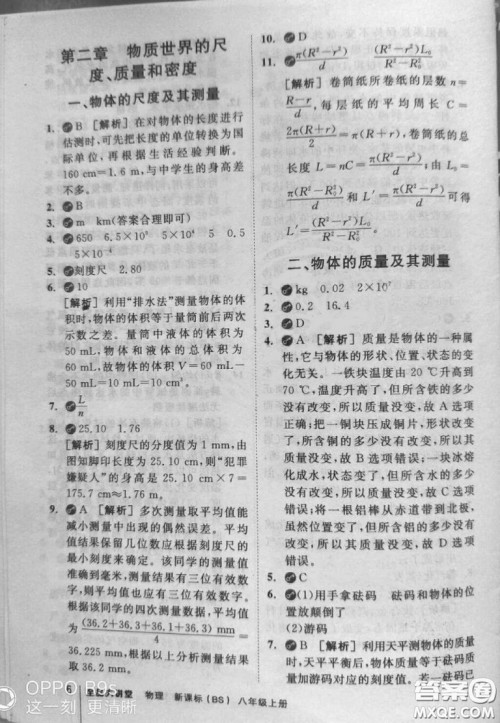 第二章 物质世界的尺
度、质量和密度
一、物体的尺度及其测量
1. B [解析]在对物体的长度进行
估测时,可先把长度的单位转换为国
际单位,再根据生活经验判断。
160 cm=1.6 m,与中学生的身高差
不多。
2. D
3. m km(答案合理即可)
4. 650 6.5×10⁵ 5 0.5
5×10⁻⁴
5. 刻度尺 2.80
6. 10
[解析]利用“排水法”测量物体的体
积时,物体的体积等于量筒前后两次
示数之差。量筒中液体的体积为
50 mL,物体和液体的总体积为
60 mL,故物体的体积V=60 mL-
50 mL=10 mL=10 cm³。
7. L/n
8. 25.10 1.76
[解析]刻度尺的分度值为1 mm,由
图知脚印长度为25.10 cm,则“犯罪
嫌疑人”的身高为25.10 cm×7=
175.7 cm≈1.76 m。
9. A [解析]多次测量取平均值能
减小测量中出现的偶然误差。平均
值结果保留几位数应根据刻度尺的
最小刻度来确定。该同学的测量值
精确到毫米,测量结果有三位有效数
字,则平均值也应有三位有效数字。
根据该同学的四次测量数据,平均值
为(36.2+36.3+36.1+36.3) mm/4
=36.2 mm。根据以上分析测量结果
取B。
10. D
11. π(R²-r²)/d (R²-r²)L₀/(R²-R₀²)
[解析]卷筒纸所卷纸的层数n=
(R-r)/d,每层纸的平均周长C=
2π(R+r)/2=π(R+r),卷筒纸的总
长度L=nC=π(R²-r²)/d;由L₀=
π(R²-R₀²)/d和L'=π(R²-r²)/d可得L'
=(R²-r²)L₀/(R²-R₀²)。
二、物体的质量及其测量
1. kg 0.02 2×10⁷
2. 0.2 16.4
3. D
4. A [解析]质量是物体的一种属
性,它与物体的形状、位置、状态的变
化无关。一铁块温度由20 ℃升高到
70 ℃,温度升高了,但所含铁的多少
没有改变,所以质量没变,故A选项
正确。把一铜块压成铜片,形状变了,
所含铜的多少没有改变,所以质量没
变,故B选项错误。一块冰熔
化成水,状态变了,但物质的多少没
有改变,所以质量没变,故C选项错
误。将一铝棒从赤道带到北极,
位置变了,但所含铝的多少没有改
变,所以质量没变,故D选项错误。
5. C
6. (1)用手拿砝码 砝码和物体的位
置放颠倒了
(2)游码
7. A [解析]利用天平测物体质量
6 全能大讲堂 物理 新课标(BS) 八年级上册
OPPO R9s
这一刻 更清晰
答案圈
MXQE.COM